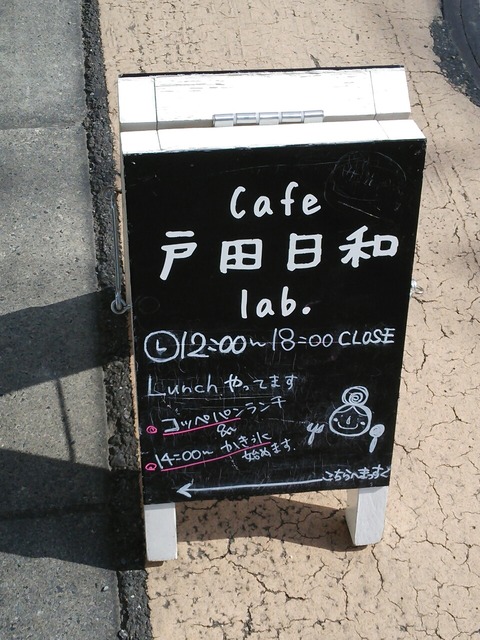 Cafe
戸田日和
lab.
12:00〜18:00 CLOSE
Lunch やってます
コッペパンランチ
&
14:00〜 かき氷
始めます。
こちらへまっすぐ